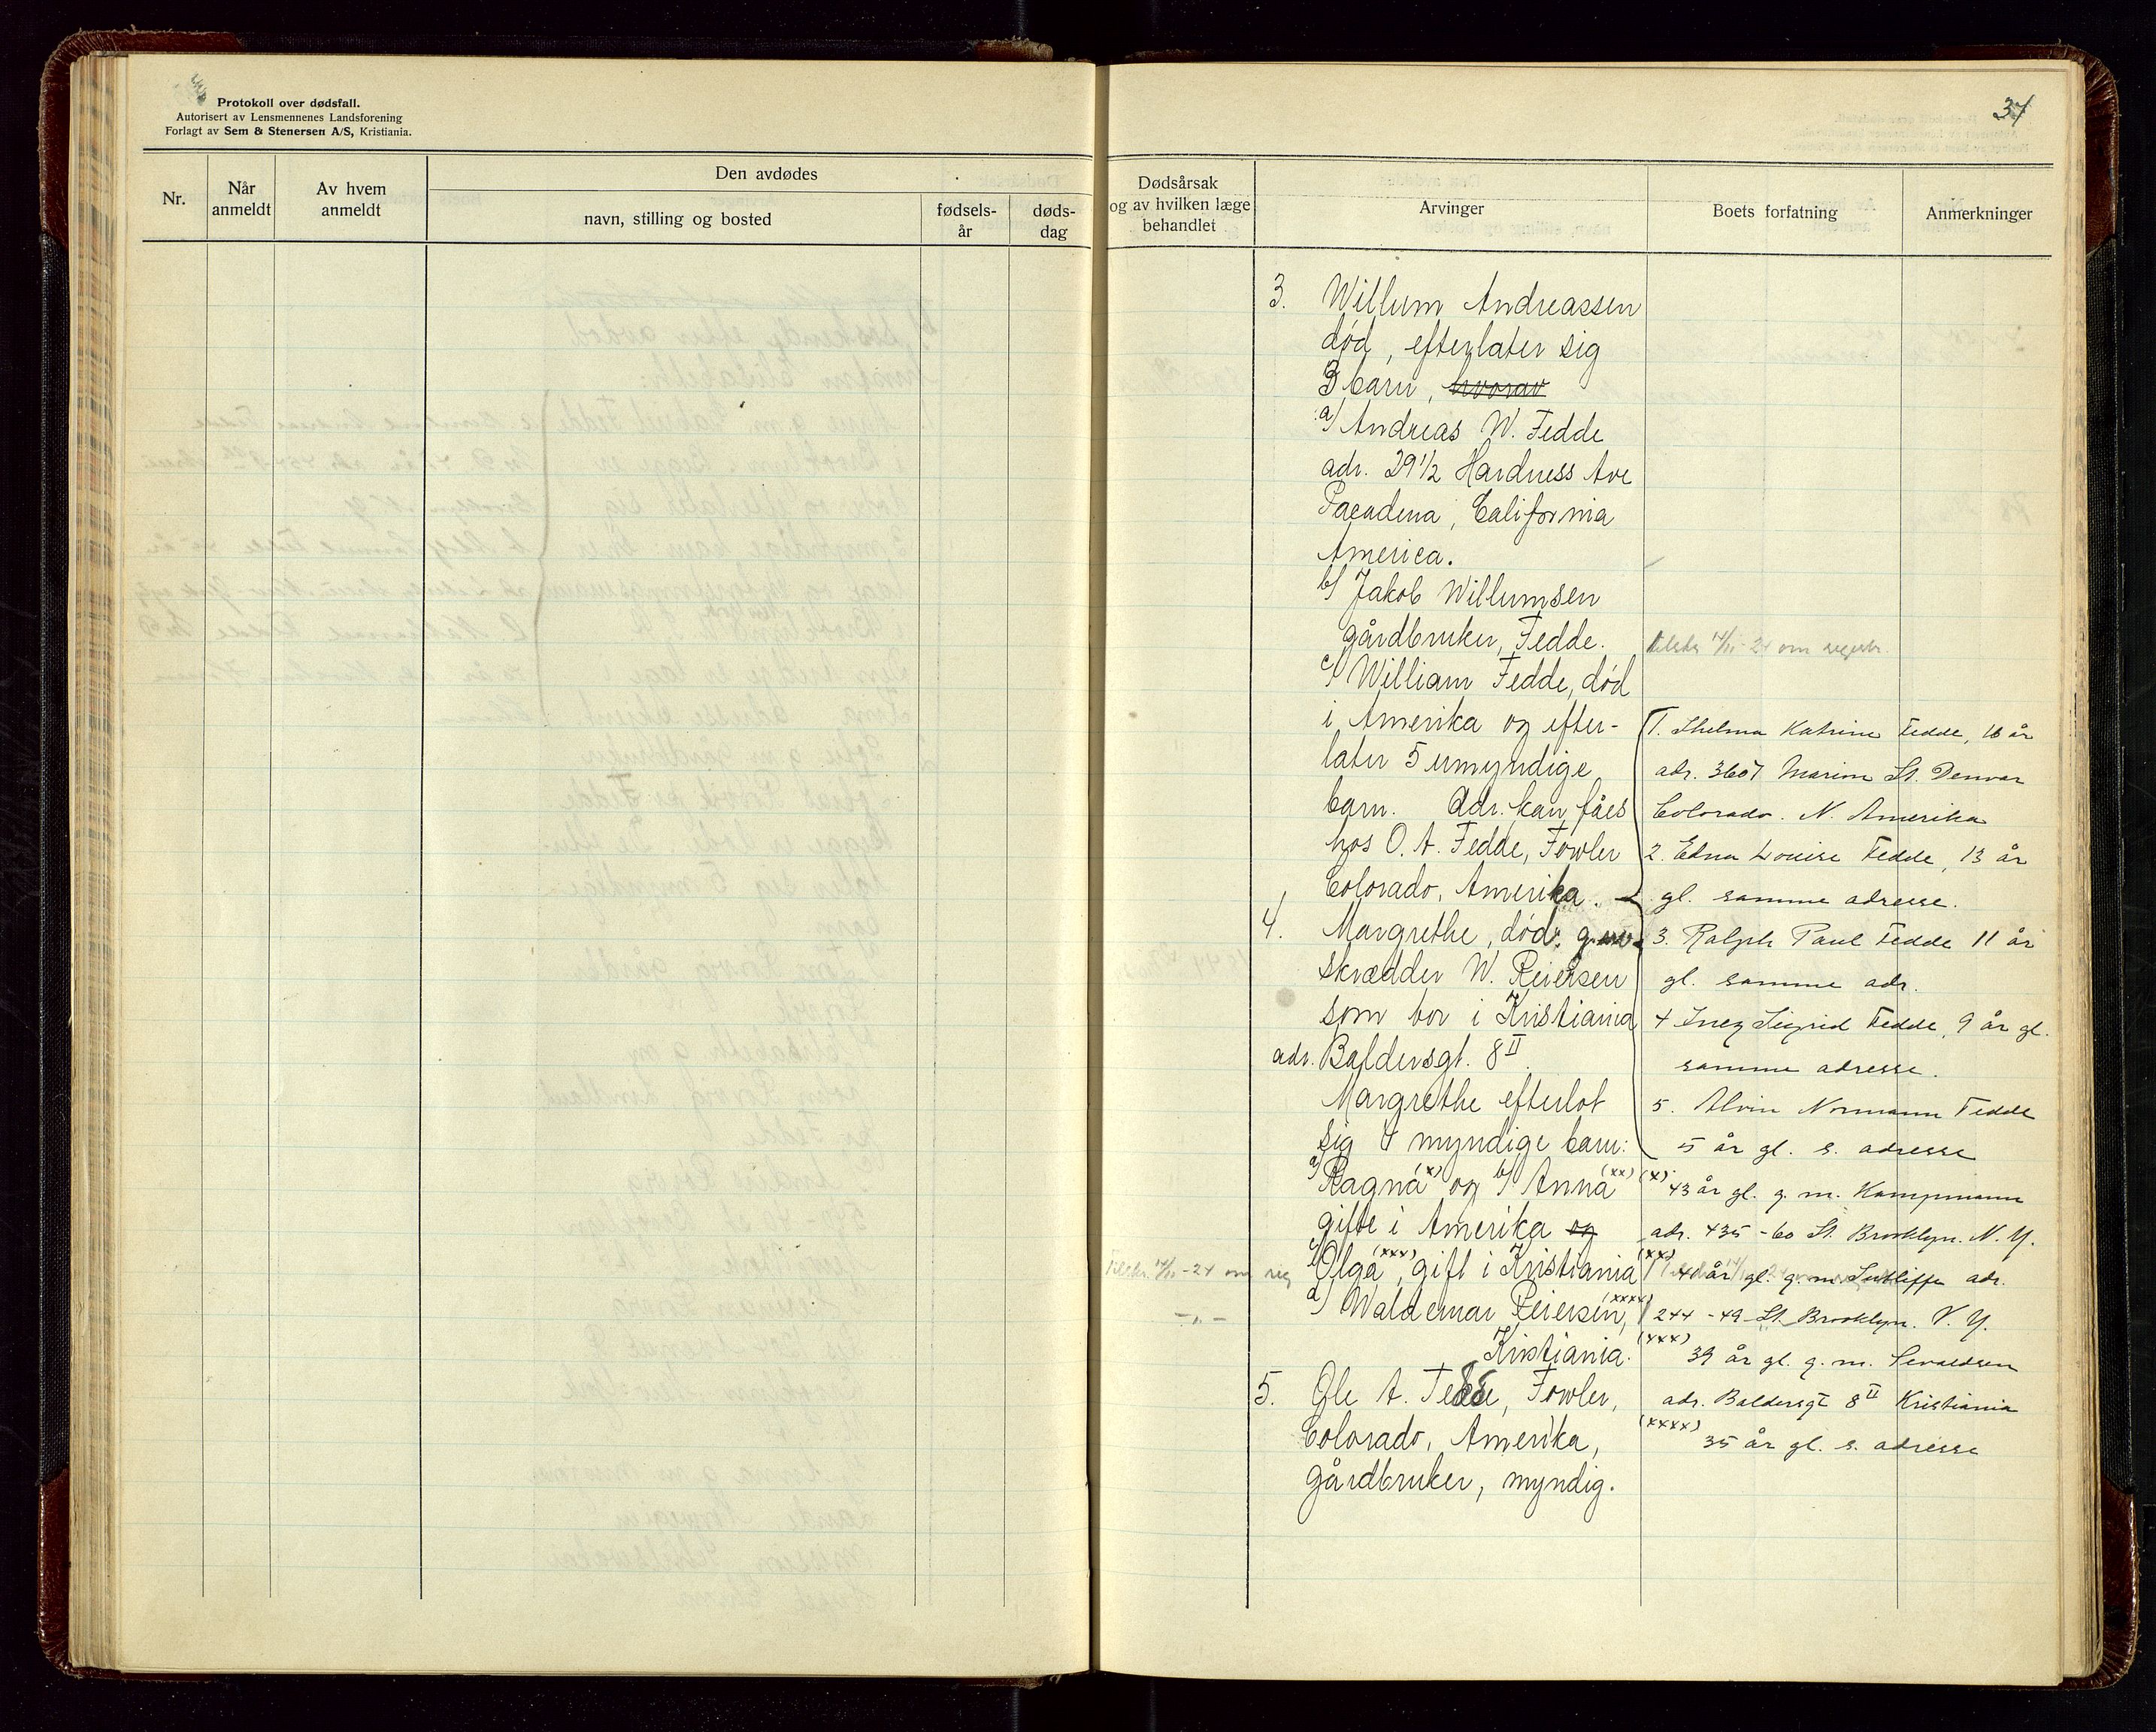 Protokoll over dødsfall.
Autorisert av Lensmennenes Landsforening
Forlagt av Sem & Stenersen A/S, Kristiania.
37
Nr.
Når anmeldt
Av hvem anmeldt
Den avdødes
navn, stilling og bosted
fødsels-
år
døds-
dag
Dødsårsak
og av hvilken læge
behandlet
Arvinger
Boets forfatning
Anmerkninger
3. Willum Andreassen
død, efterlater sig
3 barn, hvorav
a) Andreas W. Fedde
adr. 29½ Hardness Ave
Pacadena, California
America.
b) Jakob Willumsen
gårdbruker, Fedde.
c) William Fedde, død
i Amerika og efter-
later 5 umyndige
barn. Adr. kan fåes
hos O. A. Fedde, Fowler
Colorado, Amerika.
4. Margrethe, død, g.m.
skrædder W. Reiersen
som bor i Kristiania
adr. Baldersgt. 8 II.
Margrethe efterlot
sig 4 myndige barn:
a) Ragna (x) og b) Anna (xx)
gifte i Amerika og
c) Olga (xxx), gift i Kristiania
d) Waldemar Reiersen, (xxxx)
Kristiania.
5. Ole A. Fedde, Fowler,
Colorado, Amerika,
gårdbruker, myndig.
Tilskr. 14/11-24 om reg
-"-
tilskr 14/11-24 om registr.
1. Thelma Katrine Fedde, 16 år
adr. 3607 Marion St. Denvar
Colorado. N. Amerika
2. Edna Louise Fedde, 13 år
gl. samme adresse.
3. Ralph Paul Fedde 11 år
gl. samme adr.
4 Inez Sigrid Fedde, 9 år gl.
samme adresse.
5. Alvin Normann Fedde
5 år gl. s. adresse
(x) 43 år gl. g. m. Kampmann
adr. 435 - 60 St. Brooklyn. N. Y.
(xx) 40 år gl. g. m. Sutliffe adr.
244 - 49 St. Brooklyn. N. Y.
(xxx) 39 år gl. g. m. Sevaldsen
adr. Baldersgt 8 II Kristiania
(xxxx) 35 år gl. s. adresse